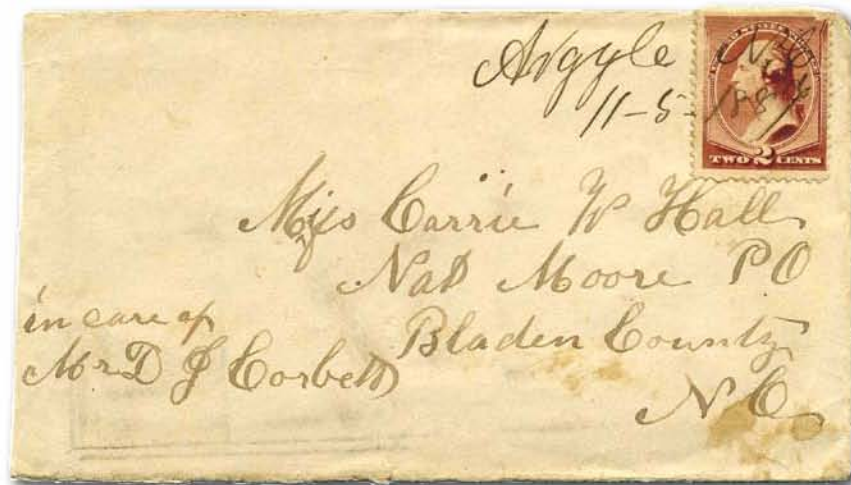 Argyle N.C.
11-5-
UNITED STATES POSTAGE
TWO 2 CENTS
Miss Carrie W Hall
Nat Moore PO
Bladen County
N C
in care of
Mr D J Corbett